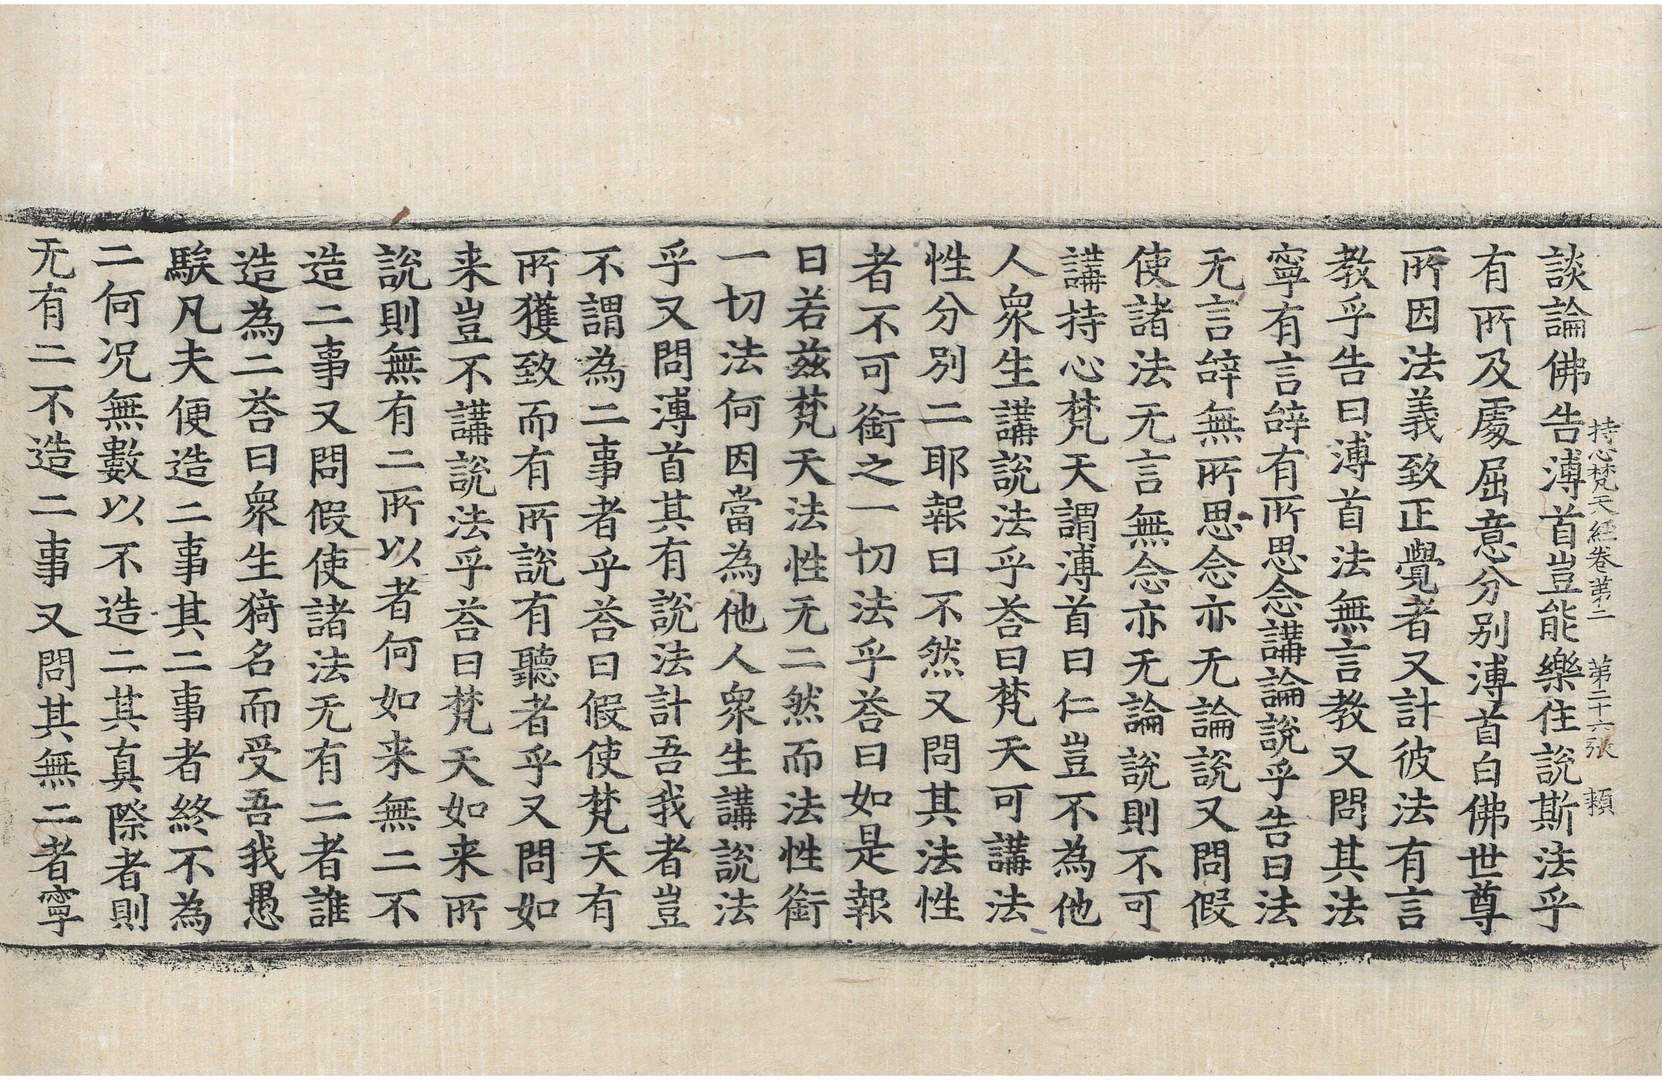 持心梵天經卷第二　第二十六張　頼
談論佛告溥首豈能樂住說斯法乎
有所及處屈意分別溥首白佛世尊
所因法義致正覺者又計彼法有言
教乎告曰溥首法無言教又問其法
寧有言辝有所思念講論說乎告曰法
无言辝無所思念亦无論說又問假
使諸法无言無念亦无論說則不可
講持心梵天謂溥首曰仁豈不為他
人衆生講說法乎荅曰梵天可講法
性分別二耶報曰不然又問其法性
者不可衘之一切法乎荅曰如是報
曰若茲梵天法性无二然而法性衘
一切法何因當為他人衆生講說法
乎又問溥首其有說法計吾我者豈
不謂為二事者乎荅曰假使梵天有
所獲致而有所說有聽者乎又問如
来豈不講說法乎荅曰梵天如来所
說則無有二所以者何如来無二不
造二事又問假使諸法无有二者誰
造為二荅曰衆生猗名而受吾我愚
騃凡夫便造二事其二事者終不為
二何况無數以不造二其真際者則
无有二不造二事又問其無二者寧